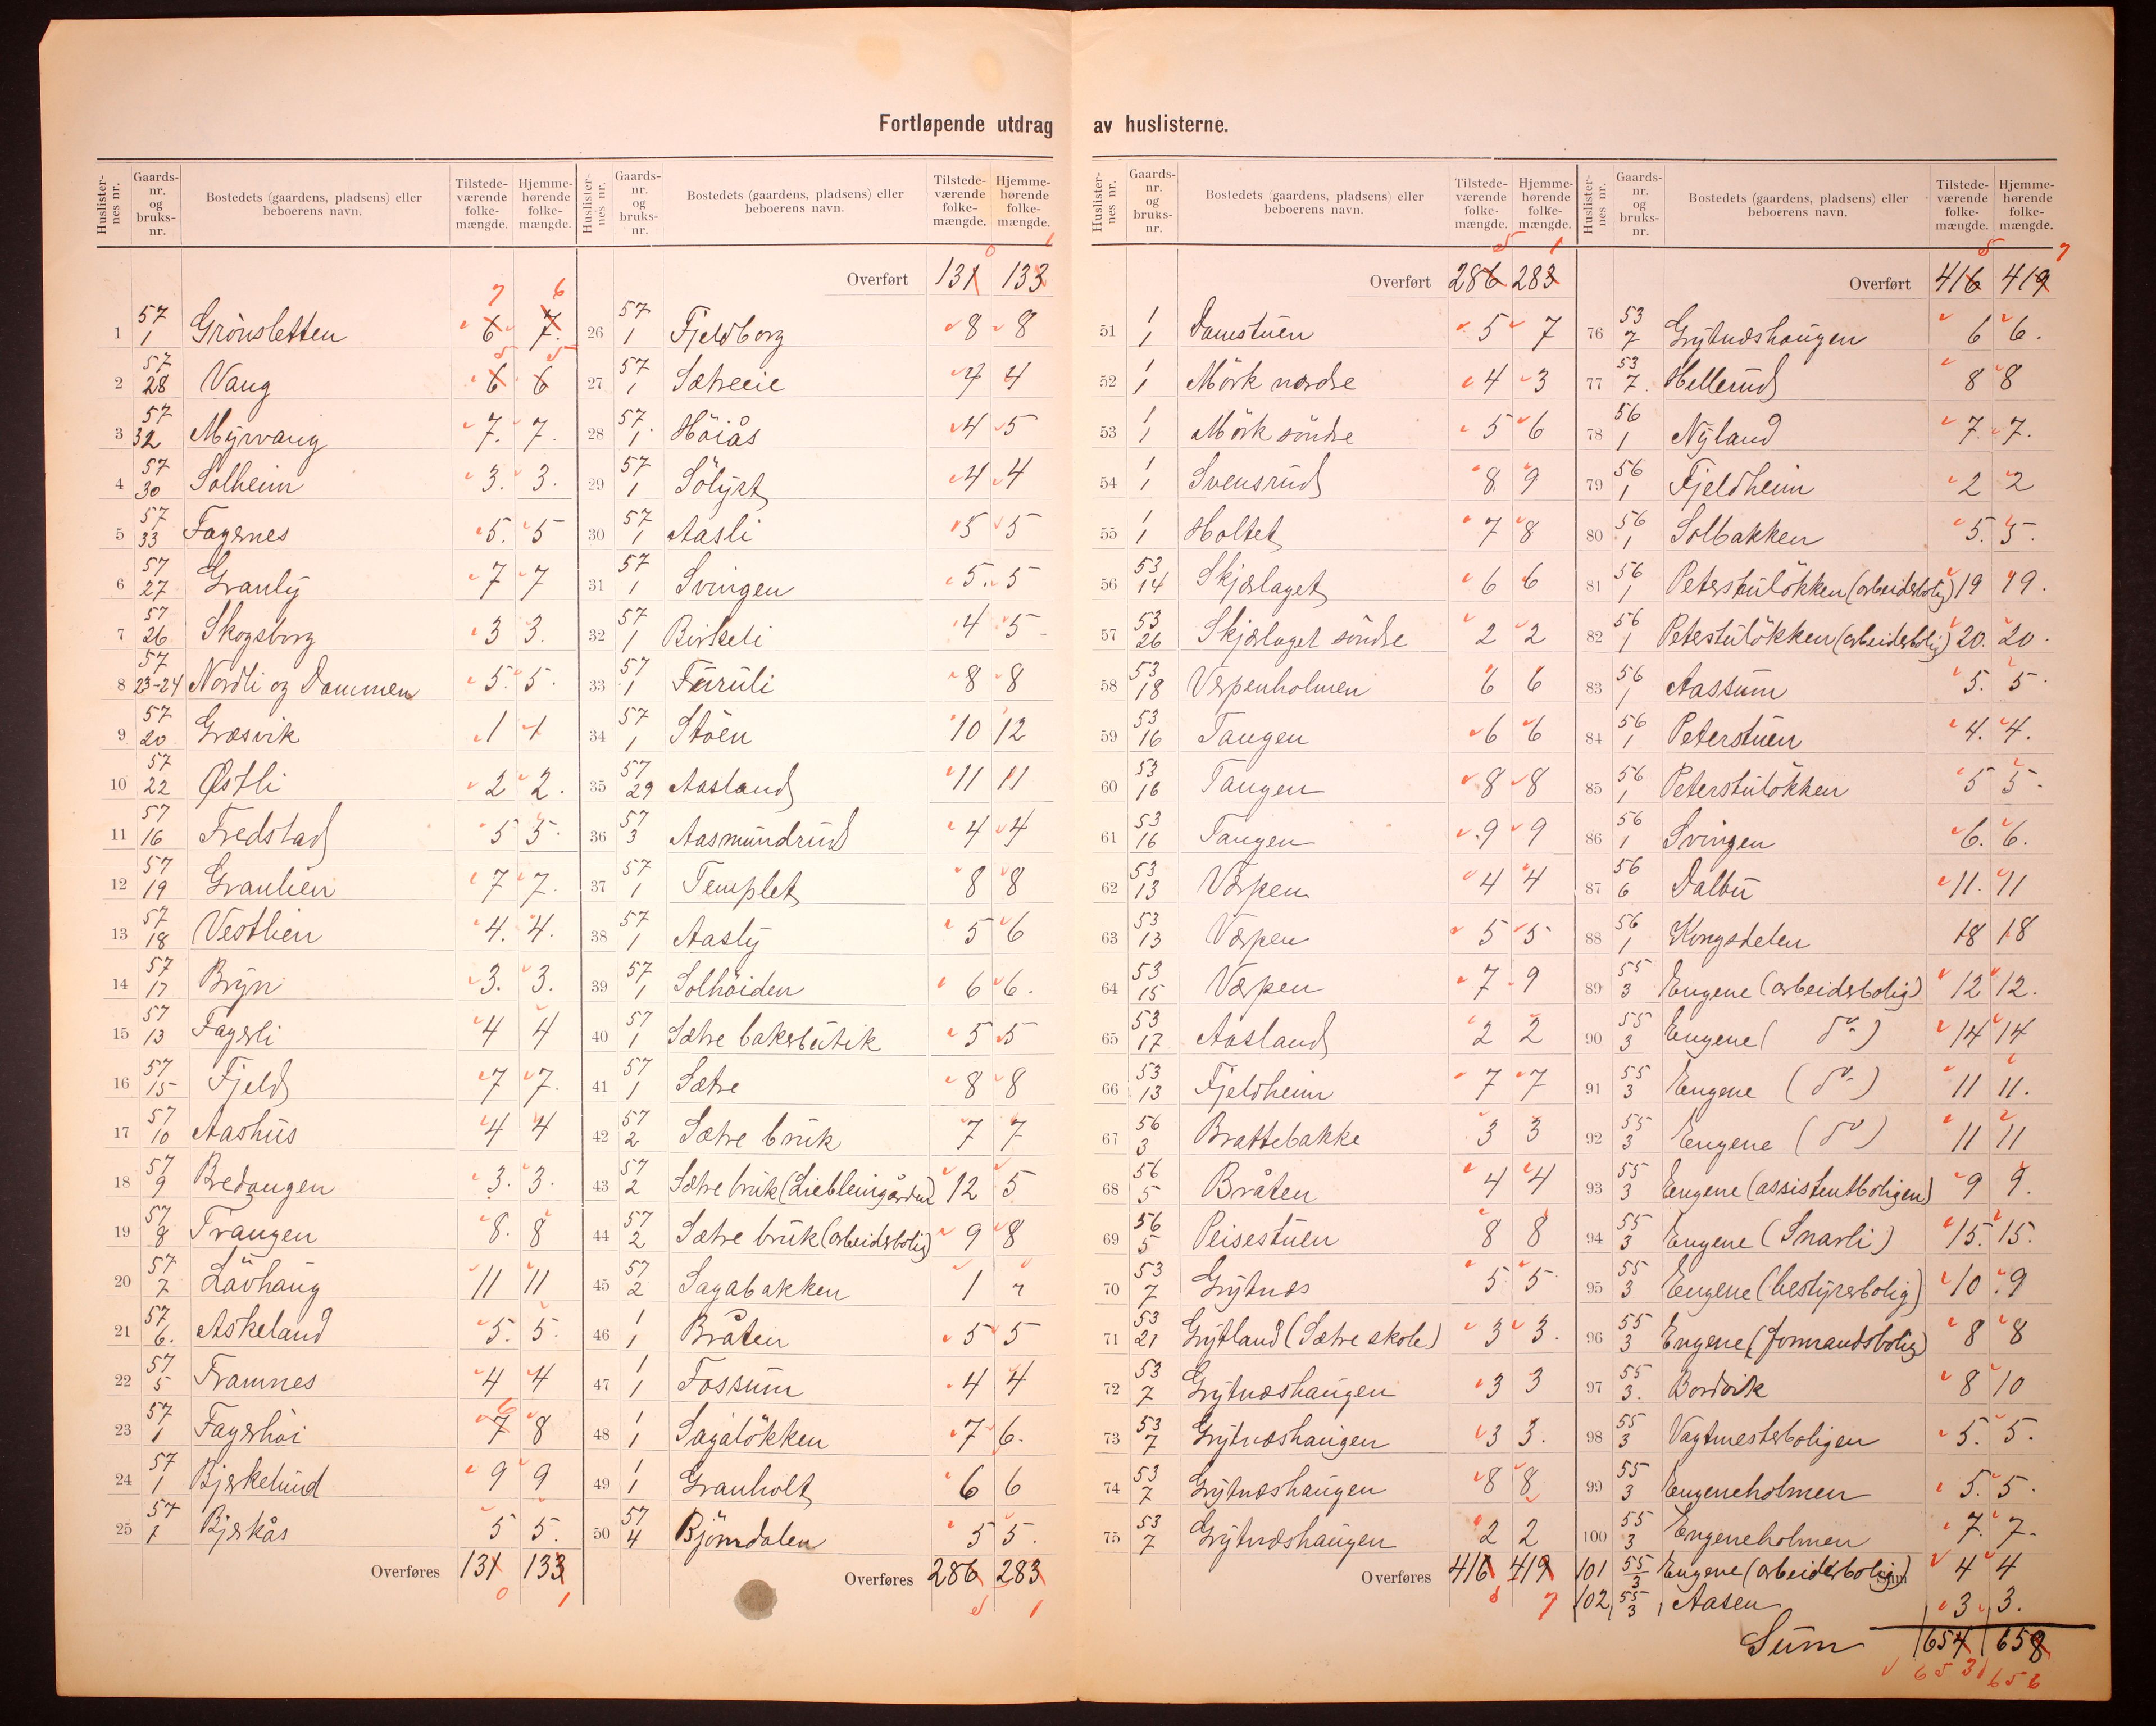 Fortløpende utdrag av huslisterne.
Huslisternes nr. Gaards-nr. og bruks-nr. Bostedets (gaardens, pladsens) eller beboerens navn. Tilstedeværende folkemængde. Hjemmehørende folkemængde.
7 6
1 57/1 Grönsletten 6 7.
5 5
2 57/28 Vang 6 6
3 57/32 Myrvang 7. 7.
4 57/30 Solheim 3. 3.
5 57/33 Fagernes 5. 5
6 57/27 Granly 7 7
7 57/26 Skogsborg 3 3.
8 57/23-24 Nordli og Dammen 5. 5.
9 57/20 Græsvik 1 1
10 57/22 Østli 2 2.
11 57/16 Fredstad 5 5.
12 57/19 Granlien 7 7.
13 57/18 Vestlien 4. 4.
14 57/17 Bryn 3. 3.
15 57/13 Fagerli 4 4
16 57/15 Fjeld 7 7.
17 57/10 Aashus 4 4
18 57/9 Bredangen 3. 3.
19 57/8 Trangen 8. 8
20 57/7 Lövhaug 11 11
21 57/6. Askeland 5. 5.
22 57/5 Framnes 4 4
6
23 57/1 Fagerhöi 7 8
24 57/1 Bjerkelund 9 9
25 57/1 Bjerkås 5 5.
Overføres 131 133
0 1
Huslisternes nr. Gaards-nr. og bruks-nr. Bostedets (gaardens, pladsens) eller beboerens navn. Tilstedeværende folkemængde. Hjemmehørende folkemængde.
0 1
Overført 131 133
26 57/1 Fjeldborg 8 8
27 57/1 Sætreeie 4 4
28 57/1. Höiås 4 5
29 57/1 Sölyst 4 4
30 57/1 Aasli 5 5
31 57/1 Svingen 5. 5
32 57/1 Birkeli 4 5
33 57/1 Furuli 8 8
34 57/1 Stöen 10 12
35 57/29 Aasland 11 11
36 57/3 Aasmundrud 4 4
37 57/1 Templet 8 8
38 57/1 Aasly 5 6
39 57/1 Solhöiden 6 6.
40 57/1 Sætre bakerbutik 5 5
41 57/1 Sætre 8 8
42 57/2 Sætre bruk 7 7
43 57/2 Sætre bruk (Liebleingården) 12 5
44 57/2 Sætre bruk (arbeidsbolig) 9 8
45 57/2 Sagabakken 1
46 1/1 Bråten 5 5
47 1/1 Fossum 4 4
48 1/1 Sagalökken 7 6.
49 1/1 Granholt 6 6
50 57/4 Björndalen 5 5.
Overføres 286 283
5 1
Huslisternes nr. Gaards-nr. og bruks-nr. Bostedets (gaardens, pladsens) eller beboerens navn. Tilstedeværende folkemængde. Hjemmehørende folkemængde.
5 1
Overført 286 283
51 1/1 Damstuen 5 7
52 1/1 Mörk nordre 4 3
53 1/1 Mörk söndre 5 6
54 1/1 Svensrud 8. 9
55 1/1 Holtet 7 8
56 53/14 Skjærlaget 6 6
57 53/26 Skjærlaget söndre 2 2
58 53/18 Verpenholmen 6 6
59 53/16 Tangen 6 6
60 53/16 Tangen 8 8
61 53/16 Tangen 9 9
62 53/13 Verpen 4 4
63 53/13 Verpen 5 5
64 53/15 Verpen 7 9
65 53/17 Aasland 2 2
66 53/13 Fjeldheim 7 7
67 56/3 Brattebakke 3 3
68 56/5 Bråten 4 4
69 56/5 Peisestuen 8 8
70 53/7 Grytnes 5 5
71 53/21 Grytland (Sætre skole) 3 3.
72 53/7 Grytnæshaugen 3 3
73 53/7 Grytnæshaugen 3 3.
74 53/7 Grytnæshaugen 8 8
75 53/7 Grytnæshaugen 2 2
Overføres 416 419
5 7
Huslisternes nr. Gaards-nr. og bruks-nr. Bostedets (gaardens, pladsens) eller beboerens navn. Tilstedeværende folkemængde. Hjemmehørende folkemængde.
5 7
Overført 416 419
76 53/7 Grytnæshaugen 6 6.
77 53/7. Hellerud 8 8
78 56/1 Nyland 7. 7.
79 56/1 Fjeldheim 2 2
80 56/1 Solbakken 5. 5.
81 56/1 Peterstulökken (arbeidsbolig) 19 19.
82 56/1 Peterstulökken (arbeidsbolig) 20. 20.
83 56/1 Aassum 5. 5.
84 56/1 Peterstuen 4. 4.
85 56/1 Peterstulökken 5 5.
86 56/1 Svingen 6. 6.
87 56/6 Dalbu 11. 11
88 56/1 Kongsdelen 18 18
89 55/3 Engene (arbeidsbolig) 12 12.
90 55/3 Engene ( do ) 14 14
91 55/3 Engene ( do ) 11 11.
92 55/3 Engene ( do ) 11 11
93 55/3 Engene (assistentboligen) 9 9.
94 55/3 Engene (Snarli) 15. 15.
95 55/3 Engene (bestyrerbolig) 10 9
96 55/3 Engene (formandsbolig) 8 8
97 55/3. Bordvik 8 10
98 55/3 Vagtmesterboligen 5. 5.
99 55/3 Engeneholmen 5. 5.
100 55/3 Engeneholmen 7. 7.
101 55/3 Engene (arbeidsbolig) Sum 4 4
102 55/3 Aasen 3 3.
Sum 654 658
653 656